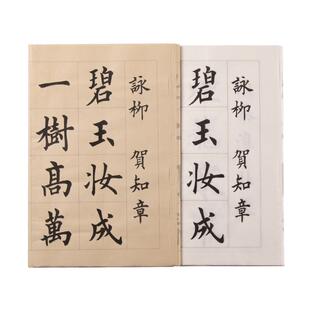 詠柳 賀知章
碧玉妝成
詠柳 賀知章
碧玉妝成
一樹髙萬